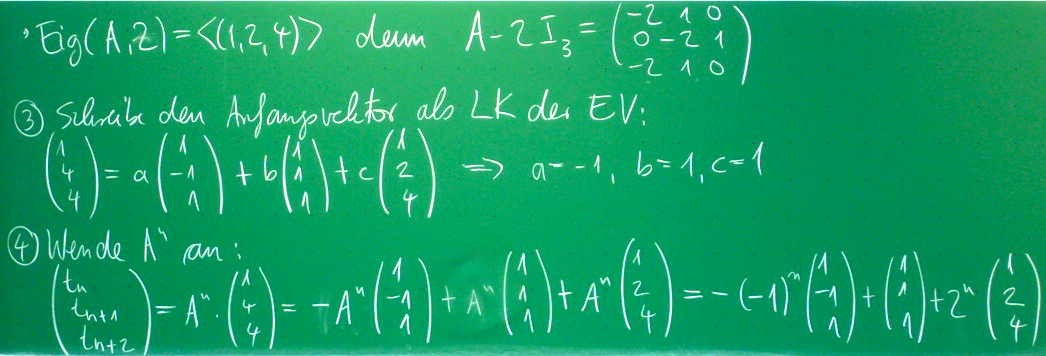 • Eig(A,2) = <(1,2,4)> denn A-2I₃ = (-2 1 0; 0 -2 1; -2 1 0)
③ Schreibe den Anfangsvektor als LK der EV:
(1; 4; 4) = a(1; -1; 1) + b(1; 1; 1) + c(1; 2; 4) ⇒ a=-1, b=1, c=1
④ Wende Aⁿ an:
(tₙ; tₙ₊₁; tₙ₊₂) = Aⁿ·(1; 4; 4) = -Aⁿ(1; -1; 1) + Aⁿ(1; 1; 1) + Aⁿ(1; 2; 4) = -(-1)ⁿ(1; -1; 1) + (1; 1; 1) + 2ⁿ(1; 2; 4)